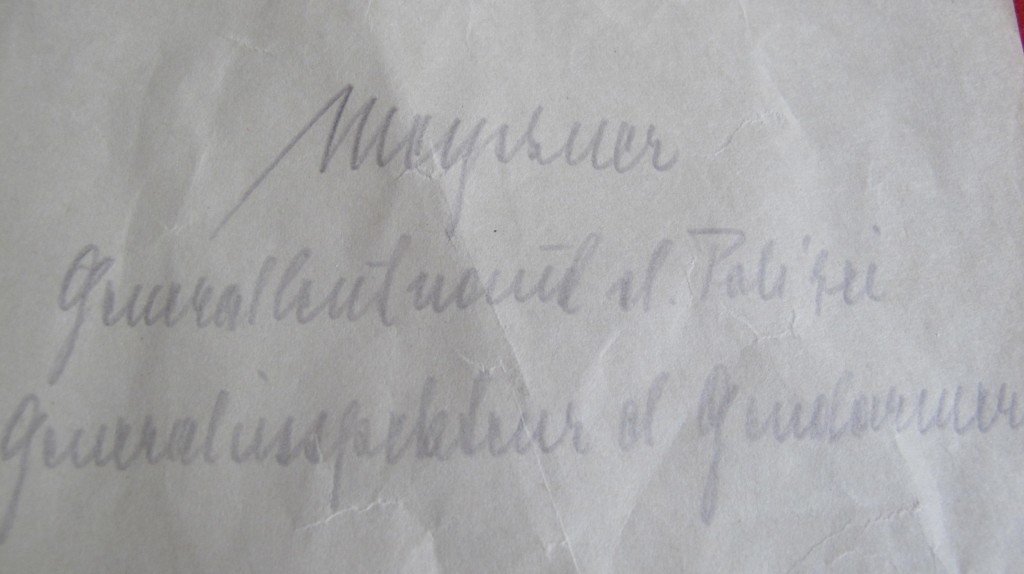 Meyszner
Generalleutnant d. Polizei
Generalinspekteur d Gendarmer